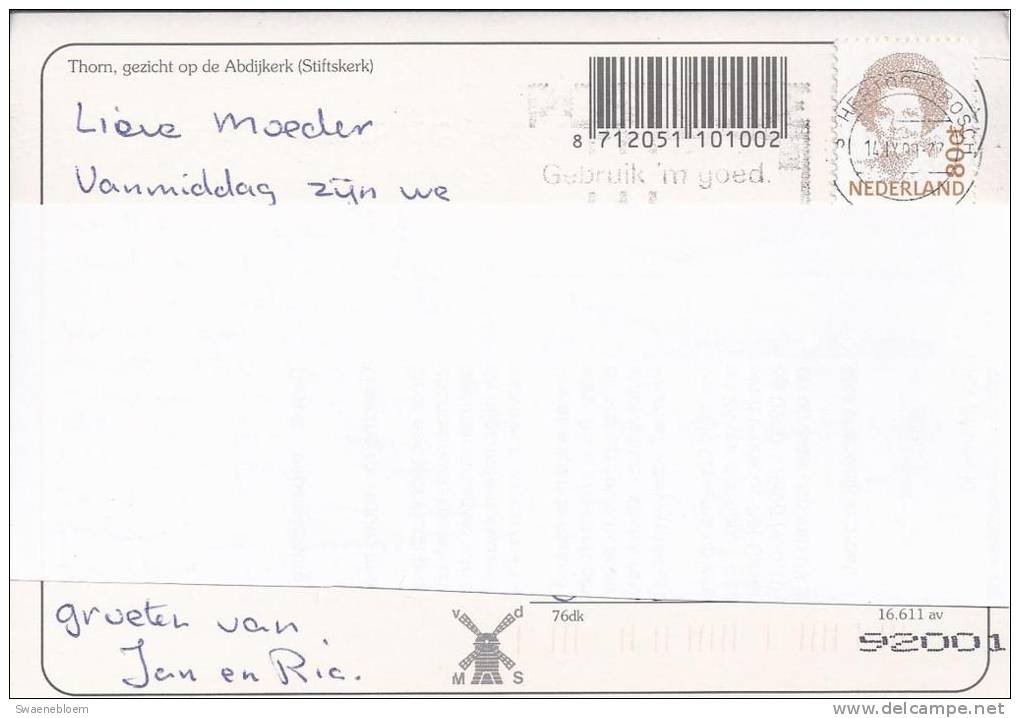 Thorn, gezicht op de Abdijkerk (Stiftskerk)
8 712051 101002
Gebruik 'm goed.
'S HERTOGENBOSCH
80ct
NEDERLAND
Lieve Moeder
Vanmiddag zijn we
groeten van
Jan en Ria.
v d
M S
76dk
16.611 av
92001
Swaenebloem
www.delcampe.net